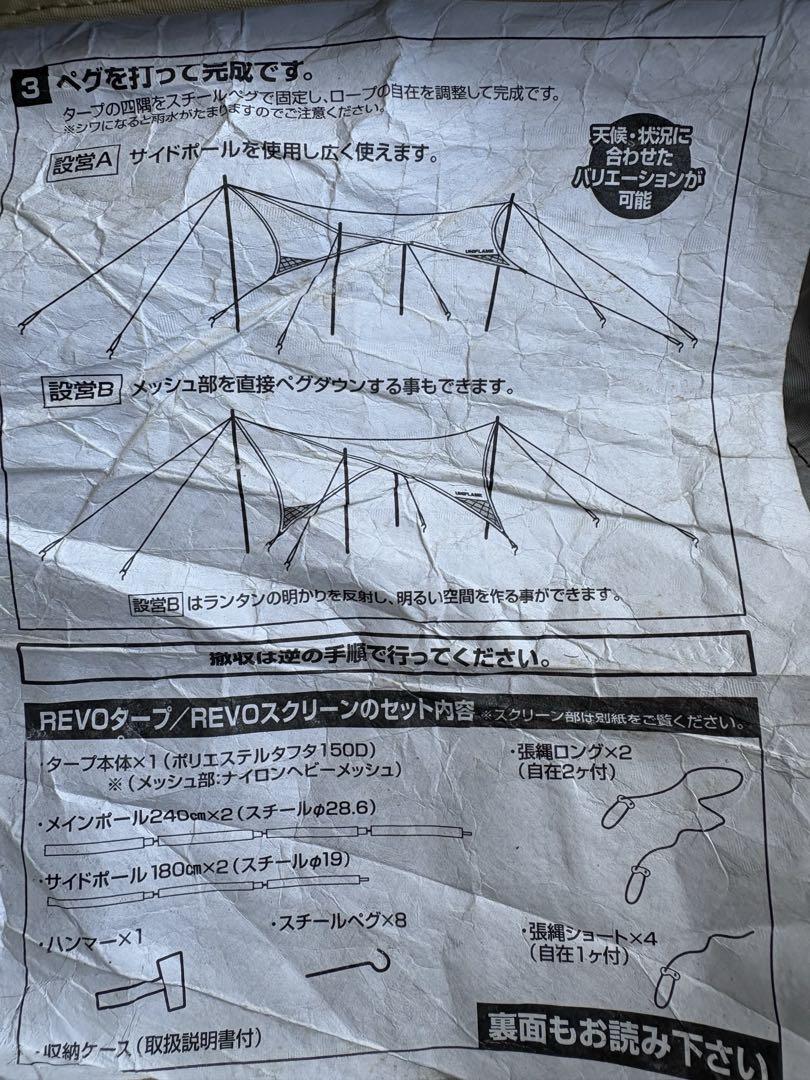 3 ペグを打って完成です。
タープの四隅をスチールペグで固定し、ロープの自在を調整して完成です。
※シワになると雨水がたまりますのでご注意ください。
天候・状況に
合わせた
バリエーションが
可能
設営A サイドポールを使用し広く使えます。
UNIFLAME
設営B メッシュ部を直接ペグダウンする事もできます。
UNIFLAME
設営B はランタンの明かりを反射し、明るい空間を作る事ができます。
撤収は逆の手順で行ってください。
REVOタープ/REVOスクリーンのセット内容 ※スクリーン部は別紙をご覧ください。
・タープ本体×1(ポリエステルタフタ150D)
※(メッシュ部:ナイロンヘビーメッシュ)
・張縄ロング×2
(自在2ヶ付)
・メインポール240cm×2(スチールφ28.6)
・サイドポール180cm×2(スチールφ19)
・ハンマー×1
・スチールペグ×8
・張縄ショート×4
(自在1ヶ付)
・収納ケース(取扱説明書付)
裏面もお読み下さい